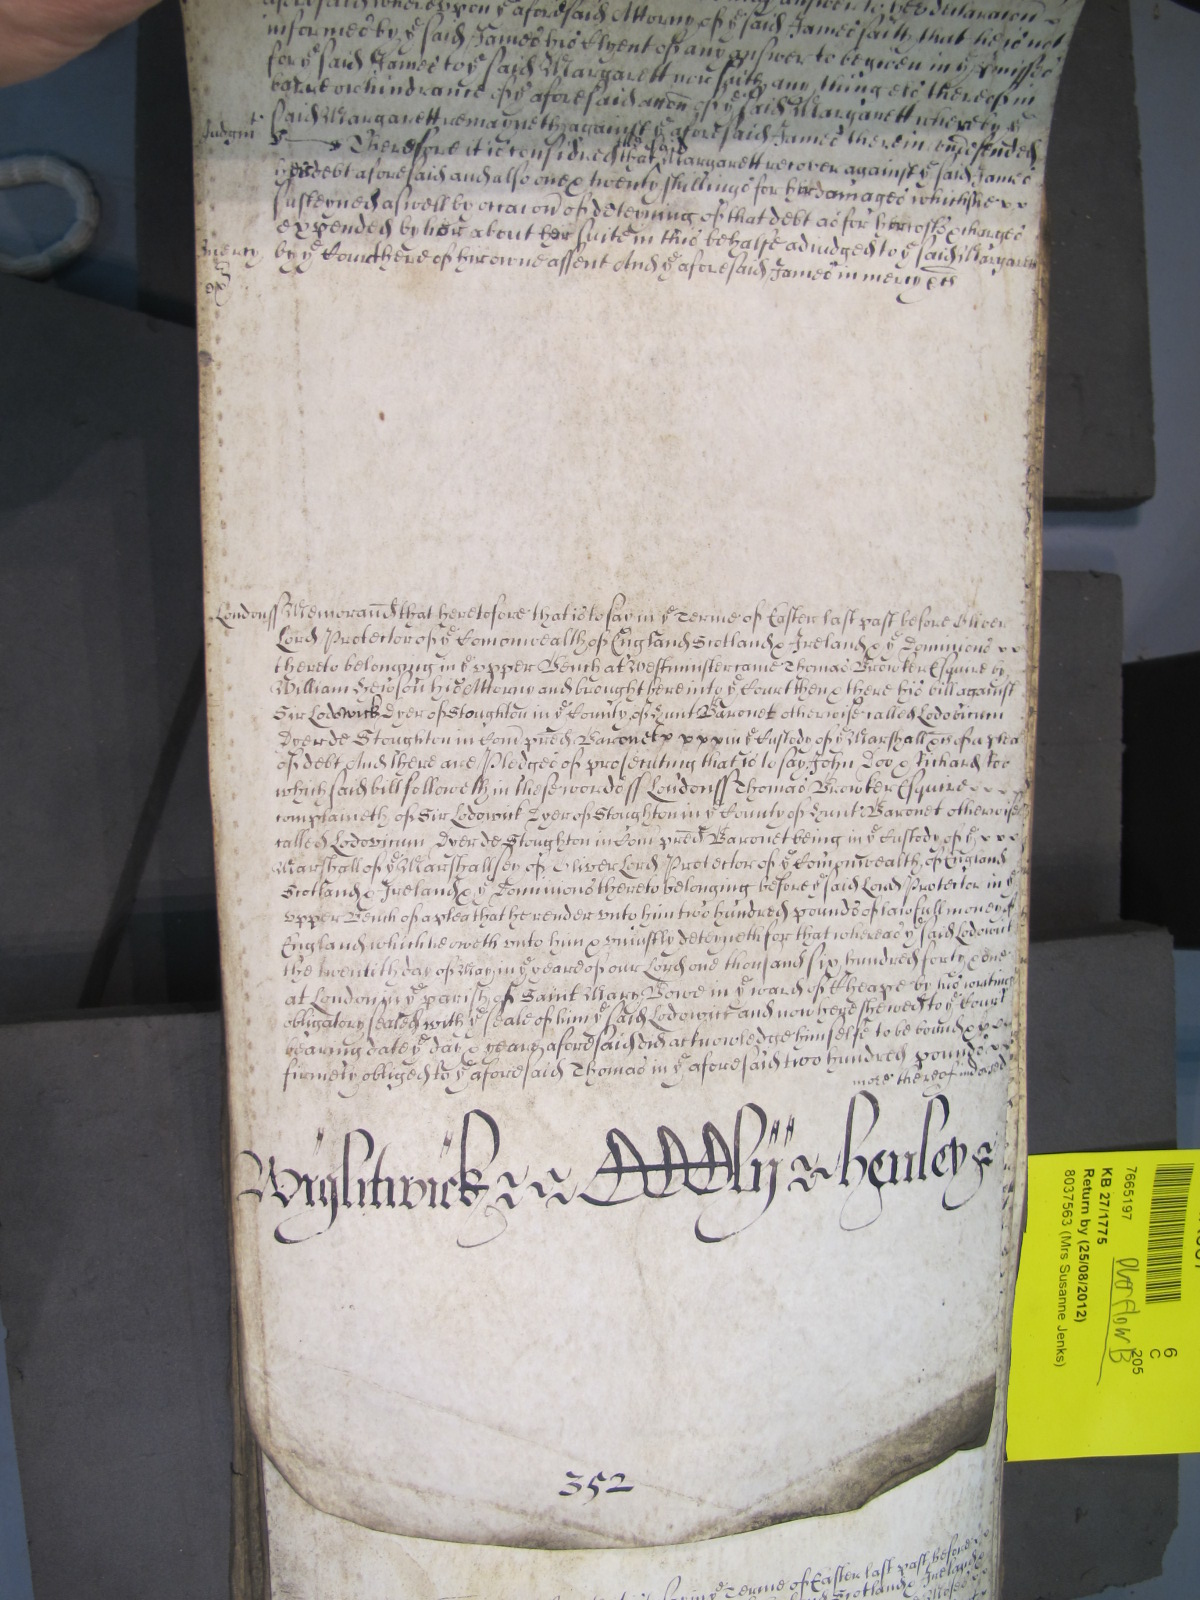 aforesaid whereupon ye aforesaid Attorny of ye said James saith that he is not
informed by ye said James his Clyent of any answer to be given in ye p̱misses
for ye said James to ye said Margarett nor saith any thing els thereof in
barre or hindrance of ye aforesaid accōn of ye said Margarett whereby ye
said Margarett remayneth against ye aforesaid James therein undefended
Judgmt Therefore it is considred that ye said Margarett recover against ye said James
her debt aforesaid and also one & twenty shillings for her damages which she
susteyned aswell by occacōn of deteyning of that debt as for her costs & charges
expended by her about her suite in this behalfe adiudged to ye said Margarett
In mercy by ye Court here of his owne assent And ye aforesaid James in mercy &c
Londonss Memorand that heretofore that is to say in ye Terme of Easter last past before Oliver
Lord Protector of ye Comonwealth of England Scotland & Ireland & ye Dominions
thereto belonging in ye upper Bench at Westminster came Thomas Browker Esquire by
William Hewson his Attorny and brought here into ye Court then & there his bill against
Sir Lodowick Dyer of Stoughton in ye County of Hunt Baronet otherwise called Lodovicum
Dyer de Stoughton in Com pred Baronet in ye Custody of ye Marshall &c of a plea
of debt And there are Pledges of prosecuting that is to say John Doo & Richard Roo
which said bill followeth in these wordss Londonss Thomas Browker Esquire
complaineth of Sir Lodowick Dyer of Stoughton in ye County of Hunt Baronet otherwise
called Lodovicum Dyer de Stoughton in Com pred Baronet being in ye Custody of ye
Marshall of ye Marshallsey of Oliver Lord Protector of ye Comonwealth of England
Scotland & Ireland & ye Dominions thereto belonging before ye said Lord Protector in ye
upper Bench of a plea that he render unto him two hundred pounds of lawfull money of
England which he oweth unto him & uniustly deteyneth for that whereas ye said Lodowick
the twentith day of May in ye yeare of our Lord one thousand six hundred forty & one
at London in ye parish of Saint Mary Bowe in ye ward of Cheape by his writing
obligatory sealed with ye seale of him ye said Lodowick and now here shewed to ye Court
bearing date ye day & yeare aforesaid did acknowledge himselfe to be bound &
firmely obliged to ye aforesaid Thomas in ye aforesaid two hundred pounds
more thereof indorsed
Wightwick Henley
352
7665197
KB 27/1775
Return by (25/08/2012)
8037563 (Mrs Susanne Jenks)
Overflow B
6
C
205
Terme of Easter last past before
Scotland & Ireland